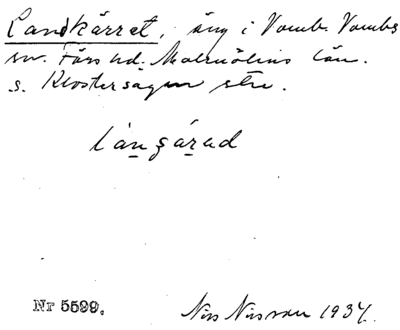 Landkärret, äng i Vomb. Vombs
sn. Färs hd. Malmöhus län.
s. Klostersågen
lángárad
Nr 5599.
Nils Nilsson 1937.